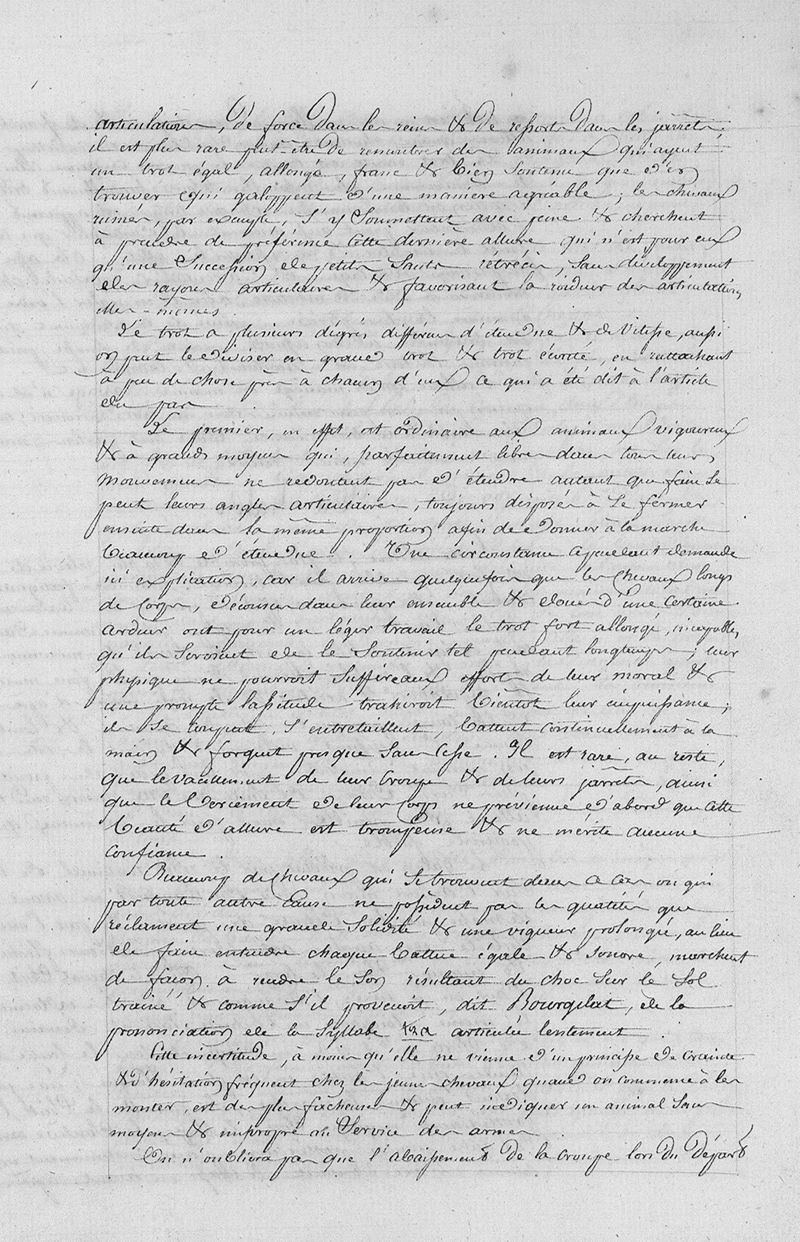 articulations, de force dans les reins & de ressorts dans les jarrets;
il est plus rare peut-être de rencontrer des animaux qui ayent
un trot égal, allongé, franc & bien soutenu que d'en
trouver qui galoppent d'une manière agréable; les chevaux
ruinés, par exemple, s'y soumettent avec peine & cherchent
à prendre de préférence cette dernière allure qui n'est pour eux
qu'une succession de petits sauts rétrécis, sans développement
des rayons articulaires & favorisant la roideur des articulations
elles-mêmes.
Le trot a plusieurs dégrés différens d'étendue & de vitesse, aussi
on peut le diviser en grand trot & trot écouté, en rattachant
à peu de chose près à chacun d'eux ce qui a été dit à l'article
du pas.
Le premier, en effet, est ordinaire aux animaux vigoureux
& à grands moyens qui, parfaitement libres dans tous leurs
mouvemens ne redoutent pas d'étendre autant que faire se
peut leurs angles articulaires, toujours disposés à se fermer
ensuite dans la même proportion afin de donner à la marche
beaucoup d'étendue. Une circonstance cependant demande
ici explication, car il arrive quelquefois que les chevaux longs
de corps, décousus dans leur ensemble & doués d'une certaine
ardeur ont pour un léger travail le trot fort allongé, incapables
qu'ils seroient de le soutenir tel pendant longtemps; leur
physique ne pourroit suffire aux efforts de leur moral &
une prompte lassitude trahiroit bientôt leur impuissance;
ils se coupent, s'entretaillent, battent continuellement à la
main & forgent presque sans cesse. Il est rare, au reste,
que le vacillement de leur croupe & de leurs jarrets, ainsi
que le bercement de leur corps ne prévienne d'abord que cette
beauté d'allure est trompeuse & ne mérite aucune
confiance.
Beaucoup de chevaux qui se trouvent dans ce cas ou qui
par toute autre cause ne possèdent pas les qualités que
réclament une grande solidité & une vigueur prolongée, au lieu
de faire entendre chaque battue égale & sonore, marchent
de façon à rendre le son résultant du choc sur le sol
trainé & comme s'il provenoit, dit Bourgelat, de la
prononciation de la syllabe tra articulée lentement.
Cette incertitude, à moins qu'elle ne vienne d'un principe de crainte
& d'hésitation fréquent chez les jeunes chevaux quand on commence à les
monter, est des plus fâcheuses & peut indiquer un animal sans
moyens & impropre au service des armes.
On n'oubliera pas que l'abaissement de la croupe lors du départ